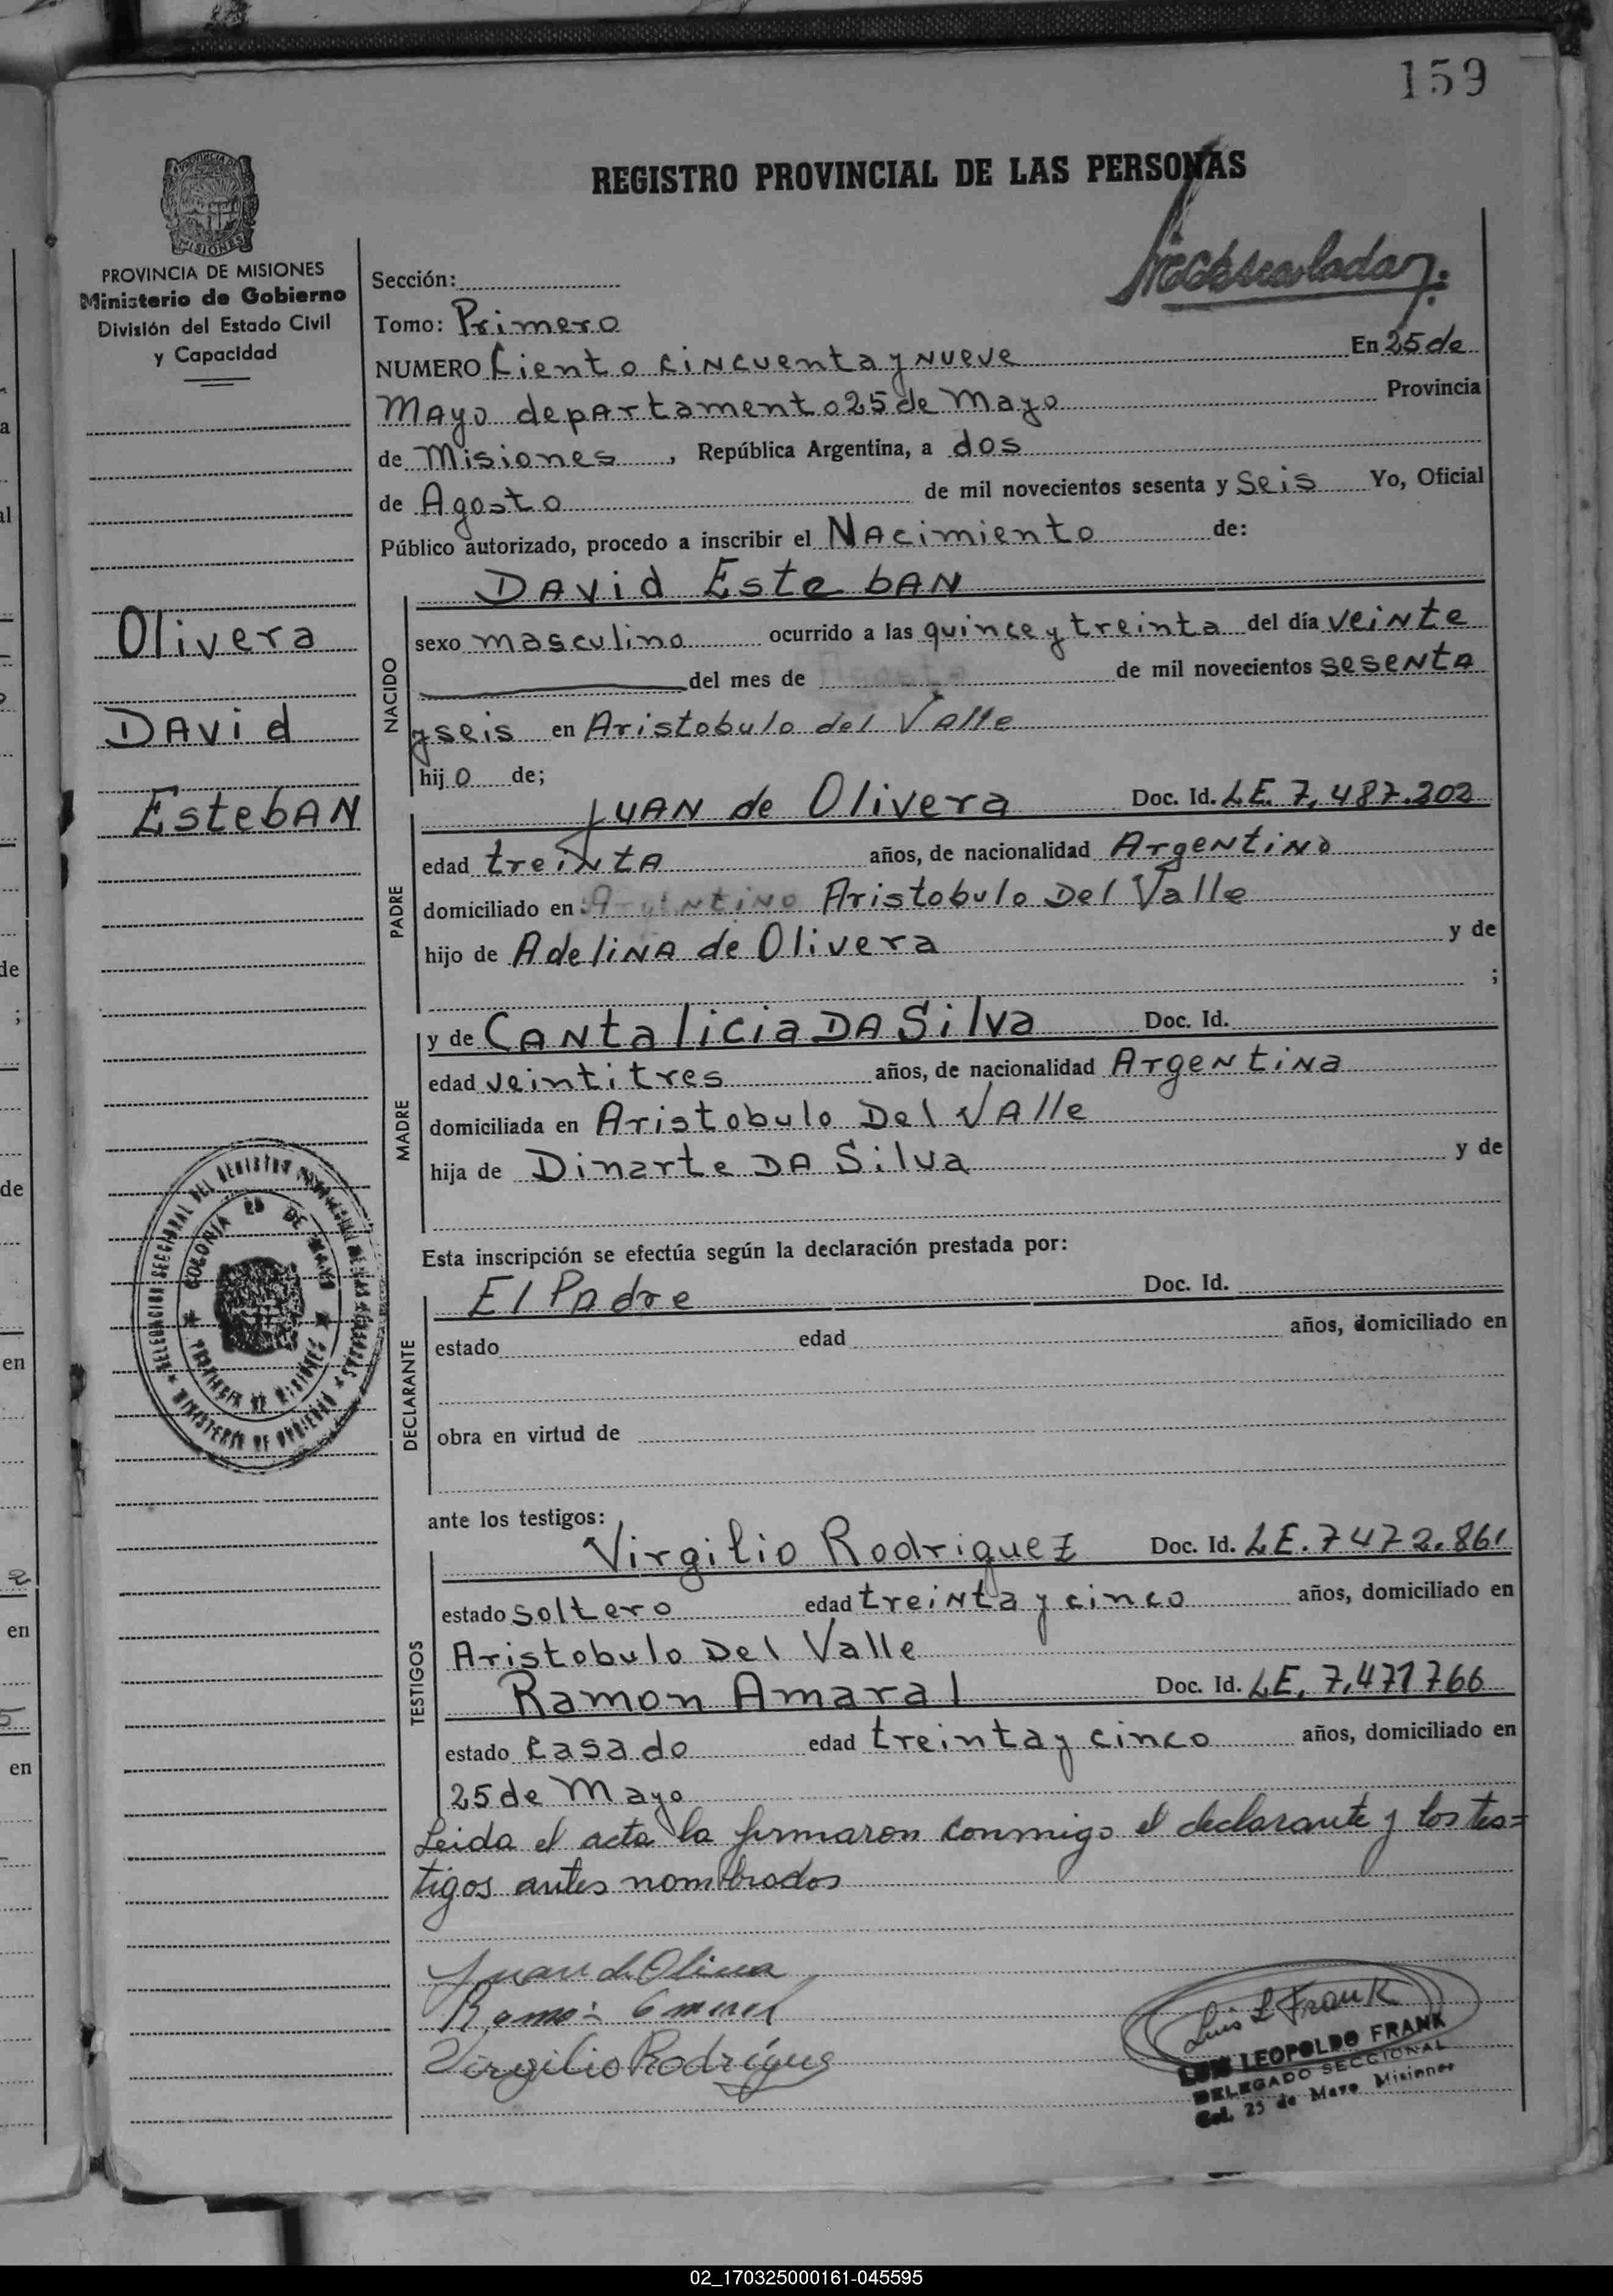 159
REGISTRO PROVINCIAL DE LAS PERSONAS
PROVINCIA DE MISIONES
Ministerio de Gobierno
División del Estado Civil
y Capacidad
Olivera
DAVid
EstebAN
Sección:
Tomo: Primero
NUMERO Ciento cincuenta y nueve En 25 de
Mayo departamento 25 de Mayo Provincia
de Misiones, República Argentina, a dos
de Agosto de mil novecientos sesenta y Seis Yo, Oficial
Público autorizado, procedo a inscribir el Nacimiento de:
NACIDO
DAVid EstebAN
sexo masculino ocurrido a las quince y treinta del día veinte
del mes de de mil novecientos sesenta
y seis en Aristobulo del Valle
hijo de;
PADRE
Juan de Olivera Doc. Id. LE. 7,487.202
edad treinta años, de nacionalidad Argentino
domiciliado en Argentino Aristobulo Del Valle
hijo de Adelina de Olivera y de
;
MADRE
y de Cantalicia DA Silva Doc. Id.
edad veintitres años, de nacionalidad Argentina
domiciliada en Aristobulo Del Valle
hija de Dinarte DA Silva y de
Esta inscripción se efectúa según la declaración prestada por:
DECLARANTE
El Padre Doc. Id.
estado edad años, domiciliado en
obra en virtud de
ante los testigos:
TESTIGOS
Virgilio Rodriguez Doc. Id. LE. 7472.861
estado soltero edad treinta y cinco años, domiciliado en
Aristobulo Del Valle
Ramon Amaral Doc. Id. LE. 7,471766
estado Casado edad treinta y cinco años, domiciliado en
25 de Mayo
Leida el acta la firmaron conmigo el declarante y los tes=
tigos antes nombrados
Juan d Olivera
Virgilio Rodrígues
Luis L Frank
LUIS LEOPOLDO FRANK
DELEGADO SECCIONAL
Col. 25 de Mayo Misiones
COLONIA 25 DE MAYO
PROVINCIA DE MISIONES
MINISTERIO DE GOBIERNO
02_170325000161-045595